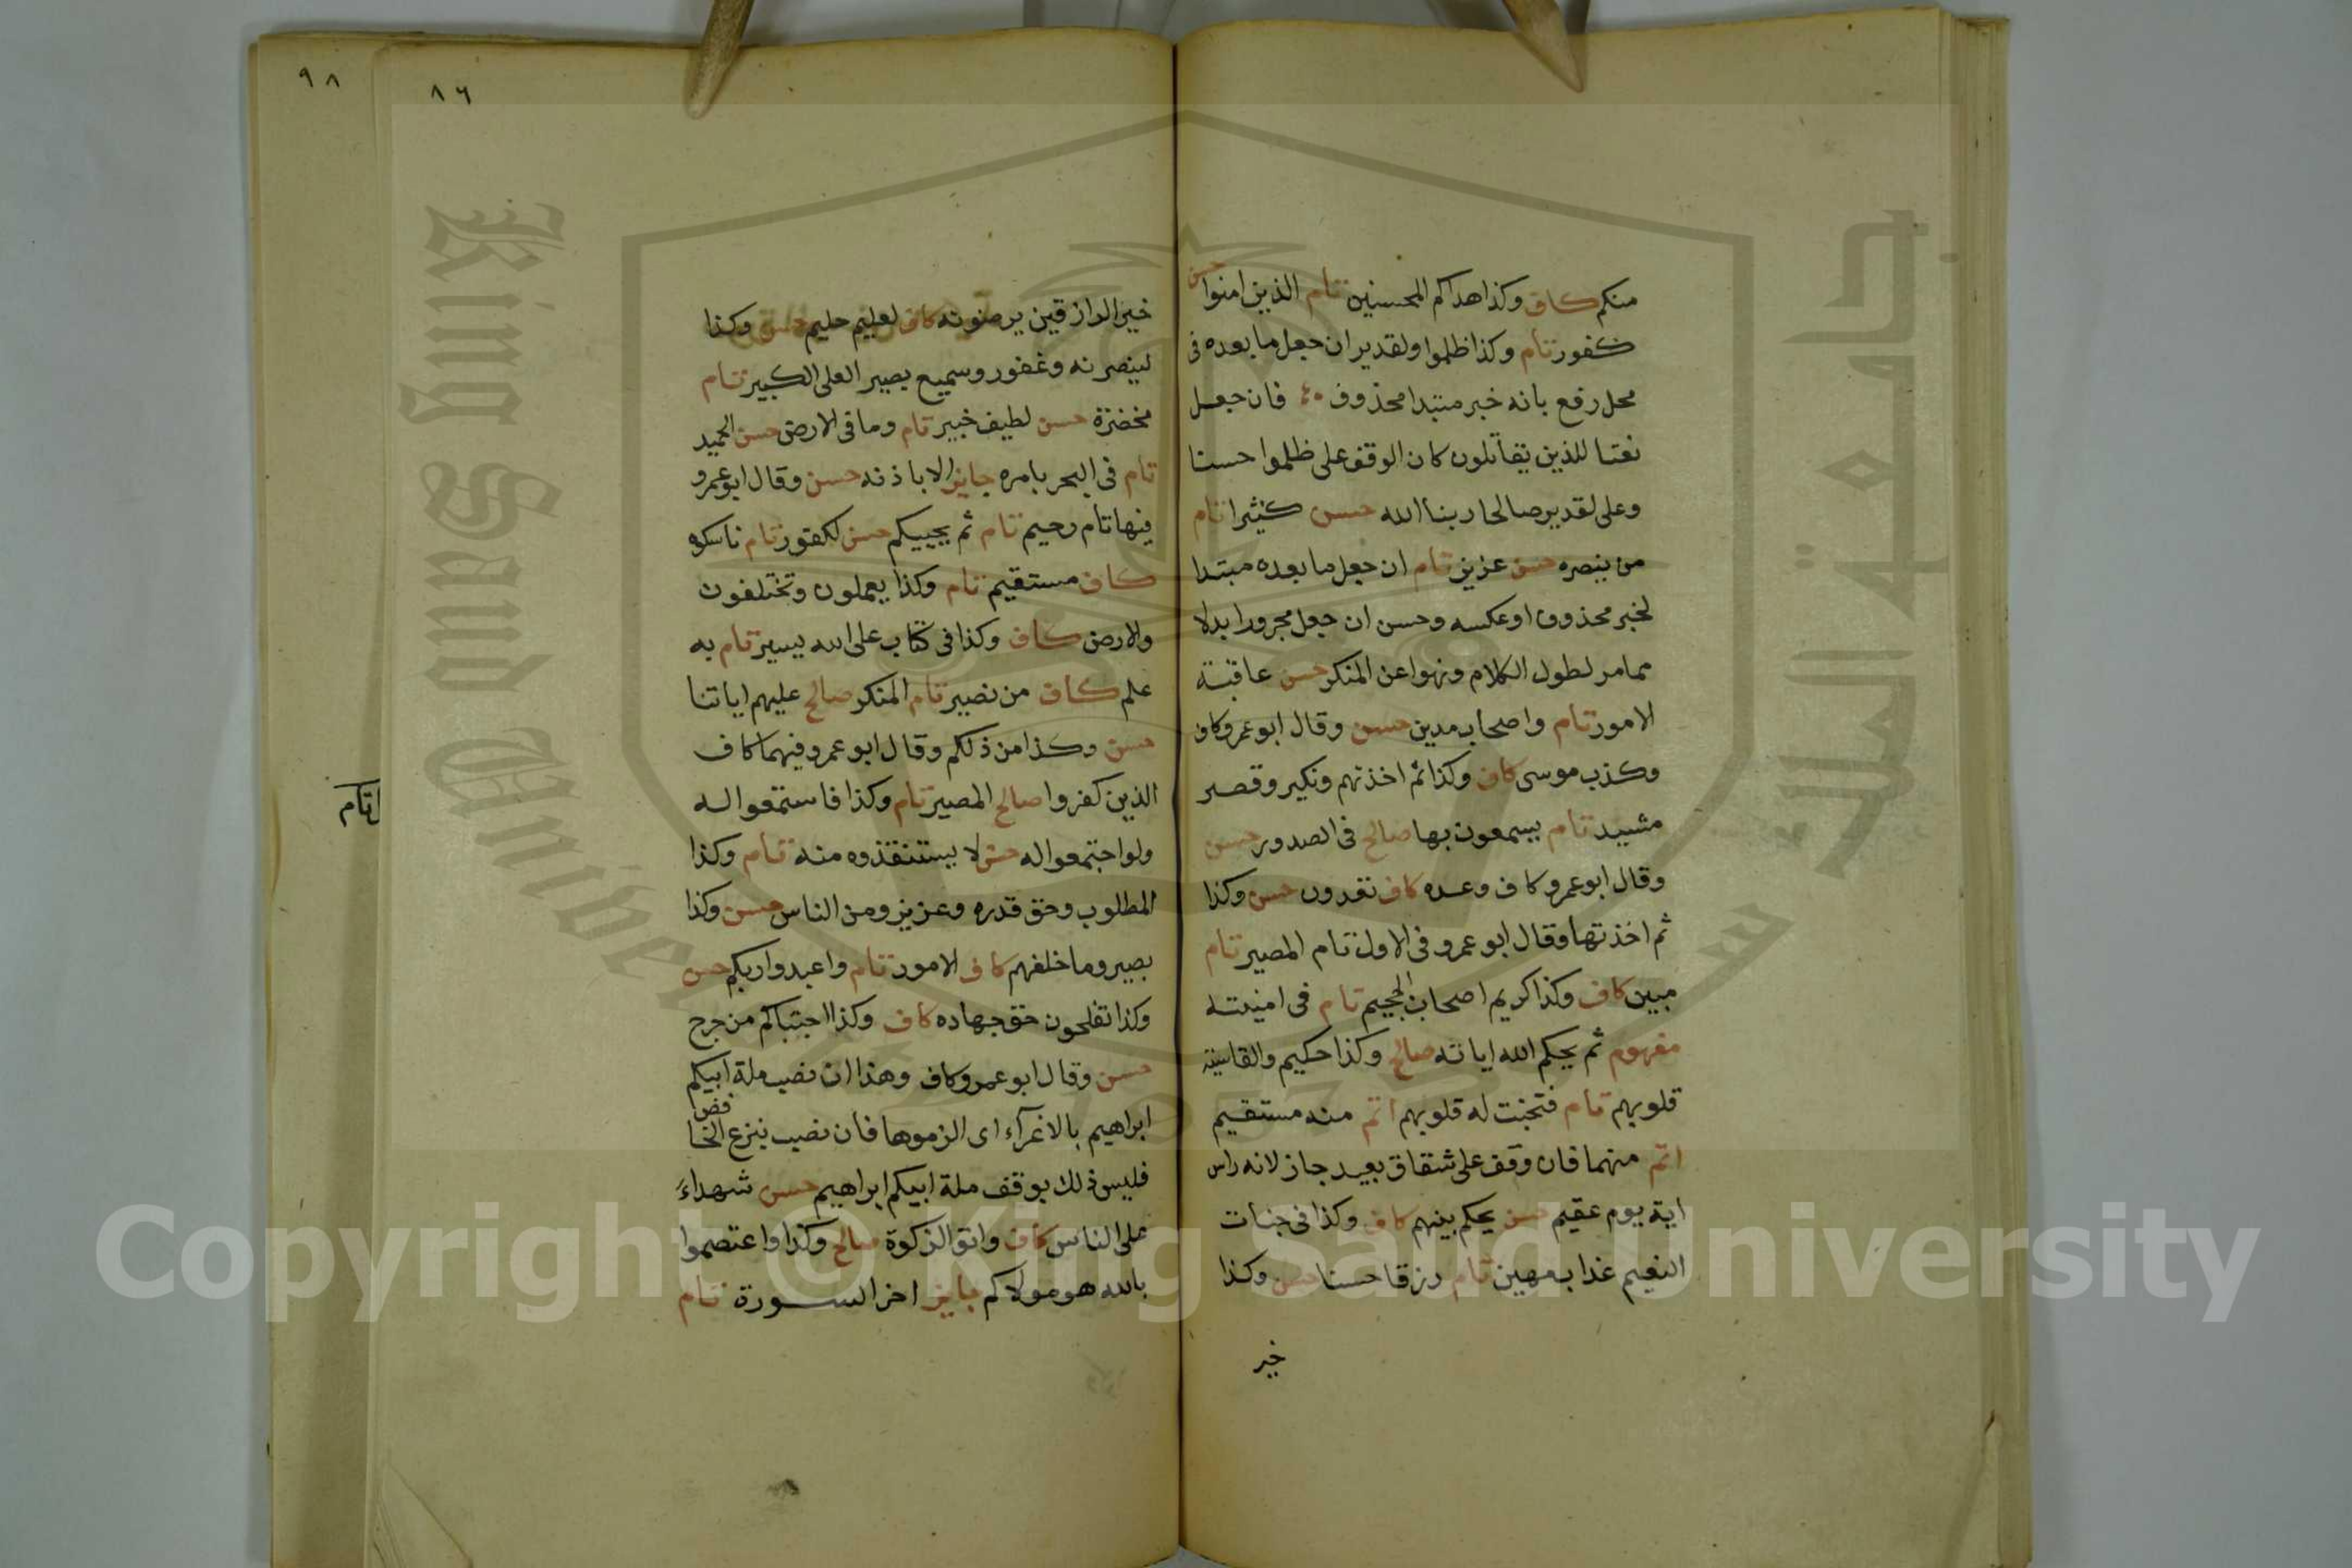 منكم كاف وكذا هداكم المحسنين تام الذين امنوا حسن
كفور تام وكذا ظلموا ولقدير ان جعل ما بعده فى
محل رفع بانه خبر مبتدا محذوف فان جعل
نعتا للذين يقاتلون كان الوقف على ظلموا حسنا
وعلى لقدير صالحا ربنا الله حسن كثيرا تام
من ينصره حسن عزيز تام ان جعل ما بعده مبتدا
لخبر محذوف او عكسه وحسن ان جعل مجرورا بدلا
ممامر لطول الكلام ونهوا عن المنكر حسن عاقبة
الامور تام واصحاب مدين حسن وقال ابو عمرو كاف
وكذب موسى كاف وكذا ثم اخذتهم ونكير وقصر
مشيد تام يسمعون بها صالح فى الصدور حسن
وقال ابو عمرو كاف وعده كاف تعدون حسن وكذا
ثم اخذتها وقال ابو عمرو فى الاول تام المصير تام
مبين كاف وكذا كريم اصحاب الجحيم تام فى امنيته
مفهوم ثم يحكم الله اياته صالح وكذا حكيم والقاسية
قلوبهم تام فتخبت له قلوبهم اتم منه مستقيم
اتم منهما فان وقف على شقاق بعيد جاز لانه راس
اية يوم عقيم حسن يحكم بينهم كاف وكذا فى جنات
النعيم عذاب مهين تام رزقا حسنا حسن وكذا
خير
٩٨
٨٦
خير الرازقين يرضونه كاف لعليم حليم حسن وكذا
لينصرنه وغفور وسميع بصير العلى الكبير تام
مخضرة حسن لطيف خبير تام وما فى الارض حسن الحميد
تام فى البحر بامره جايز الا باذنه حسن وقال ابو عمرو
فيها تام رحيم تام ثم يحييكم حسن لكفور تام ناسكوه
كاف مستقيم تام وكذا يعملون وتختلفون
والارض كاف وكذا فى كتاب على الله يسير تام به
علم كاف من نصير تام المنكر صالح عليهم اياتنا
حسن وكذا من ذلكم وقال ابو عمرو فيهما كاف
الذين كفروا صالح المصير تام وكذا فاستمعوا له
ولو اجتمعوا له حسن لا يستنقذوه منه تام وكذا
المطلوب وحق قدره وعزيز ومن الناس حسن وكذا
بصير وما خلفهم كاف الامور تام واعبدوا ربكم حسن
وكذا تفلحون حق جهاده كاف وكذا اجتباكم من حرج
حسن وقال ابو عمرو كاف وهذا ان نصب ملة ابيكم
ابراهيم بالاغراء اى الزموها فان نصب بنزع الخافض
فليس ذلك بوقف ملة ابيكم ابراهيم حسن شهداء
على الناس كاف واتو الزكوة صالح وكذا واعتصموا
بالله هو مولاكم جايز اخر السورة تام
تام
King Saud Univer
جامعة الملك س
1957
Copyright © King Saud University